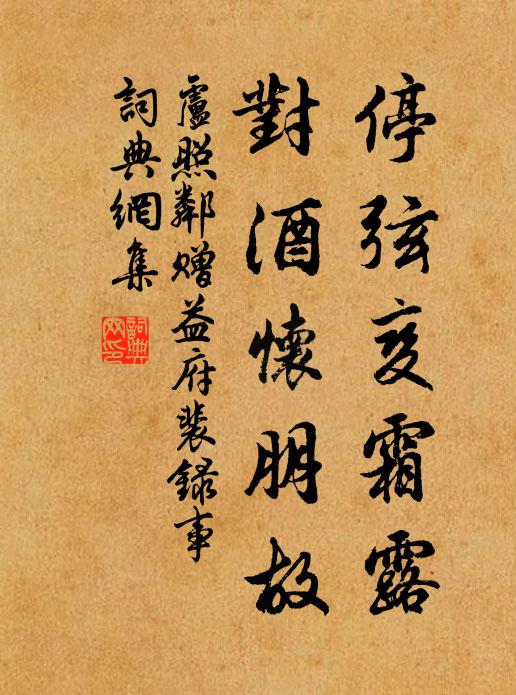 停弦变霜露
對酒懷朋故
盧照鄰贈益府裴録事
詞典網集
詞典
网印